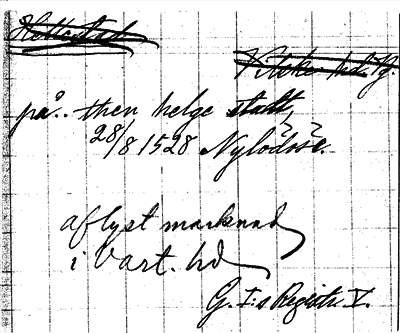 på.. then helge stadt,
28/8 1528 Nylödöse.
aflyst marknad
i Vart. hd
G. I:s Registr. V.